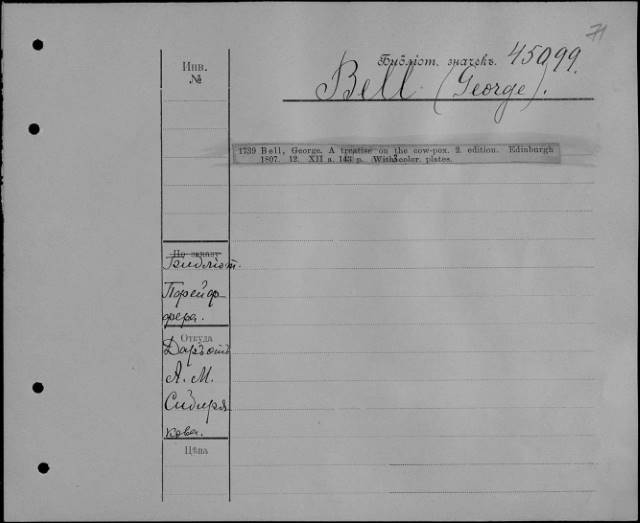 71
Библіот. значекъ. 45099.
Bell (George).
Инв.
№
1739 Bell, George. A treatise on the cow-pox. 2. edition. Edinburgh
1807. 12. XII a. 143 p. With 3 color. plates.
По заказу
Библіот.
Порейор-
фера.
Откуда
Даръ отъ
А. М.
Сибиря-
кова.
Цѣна